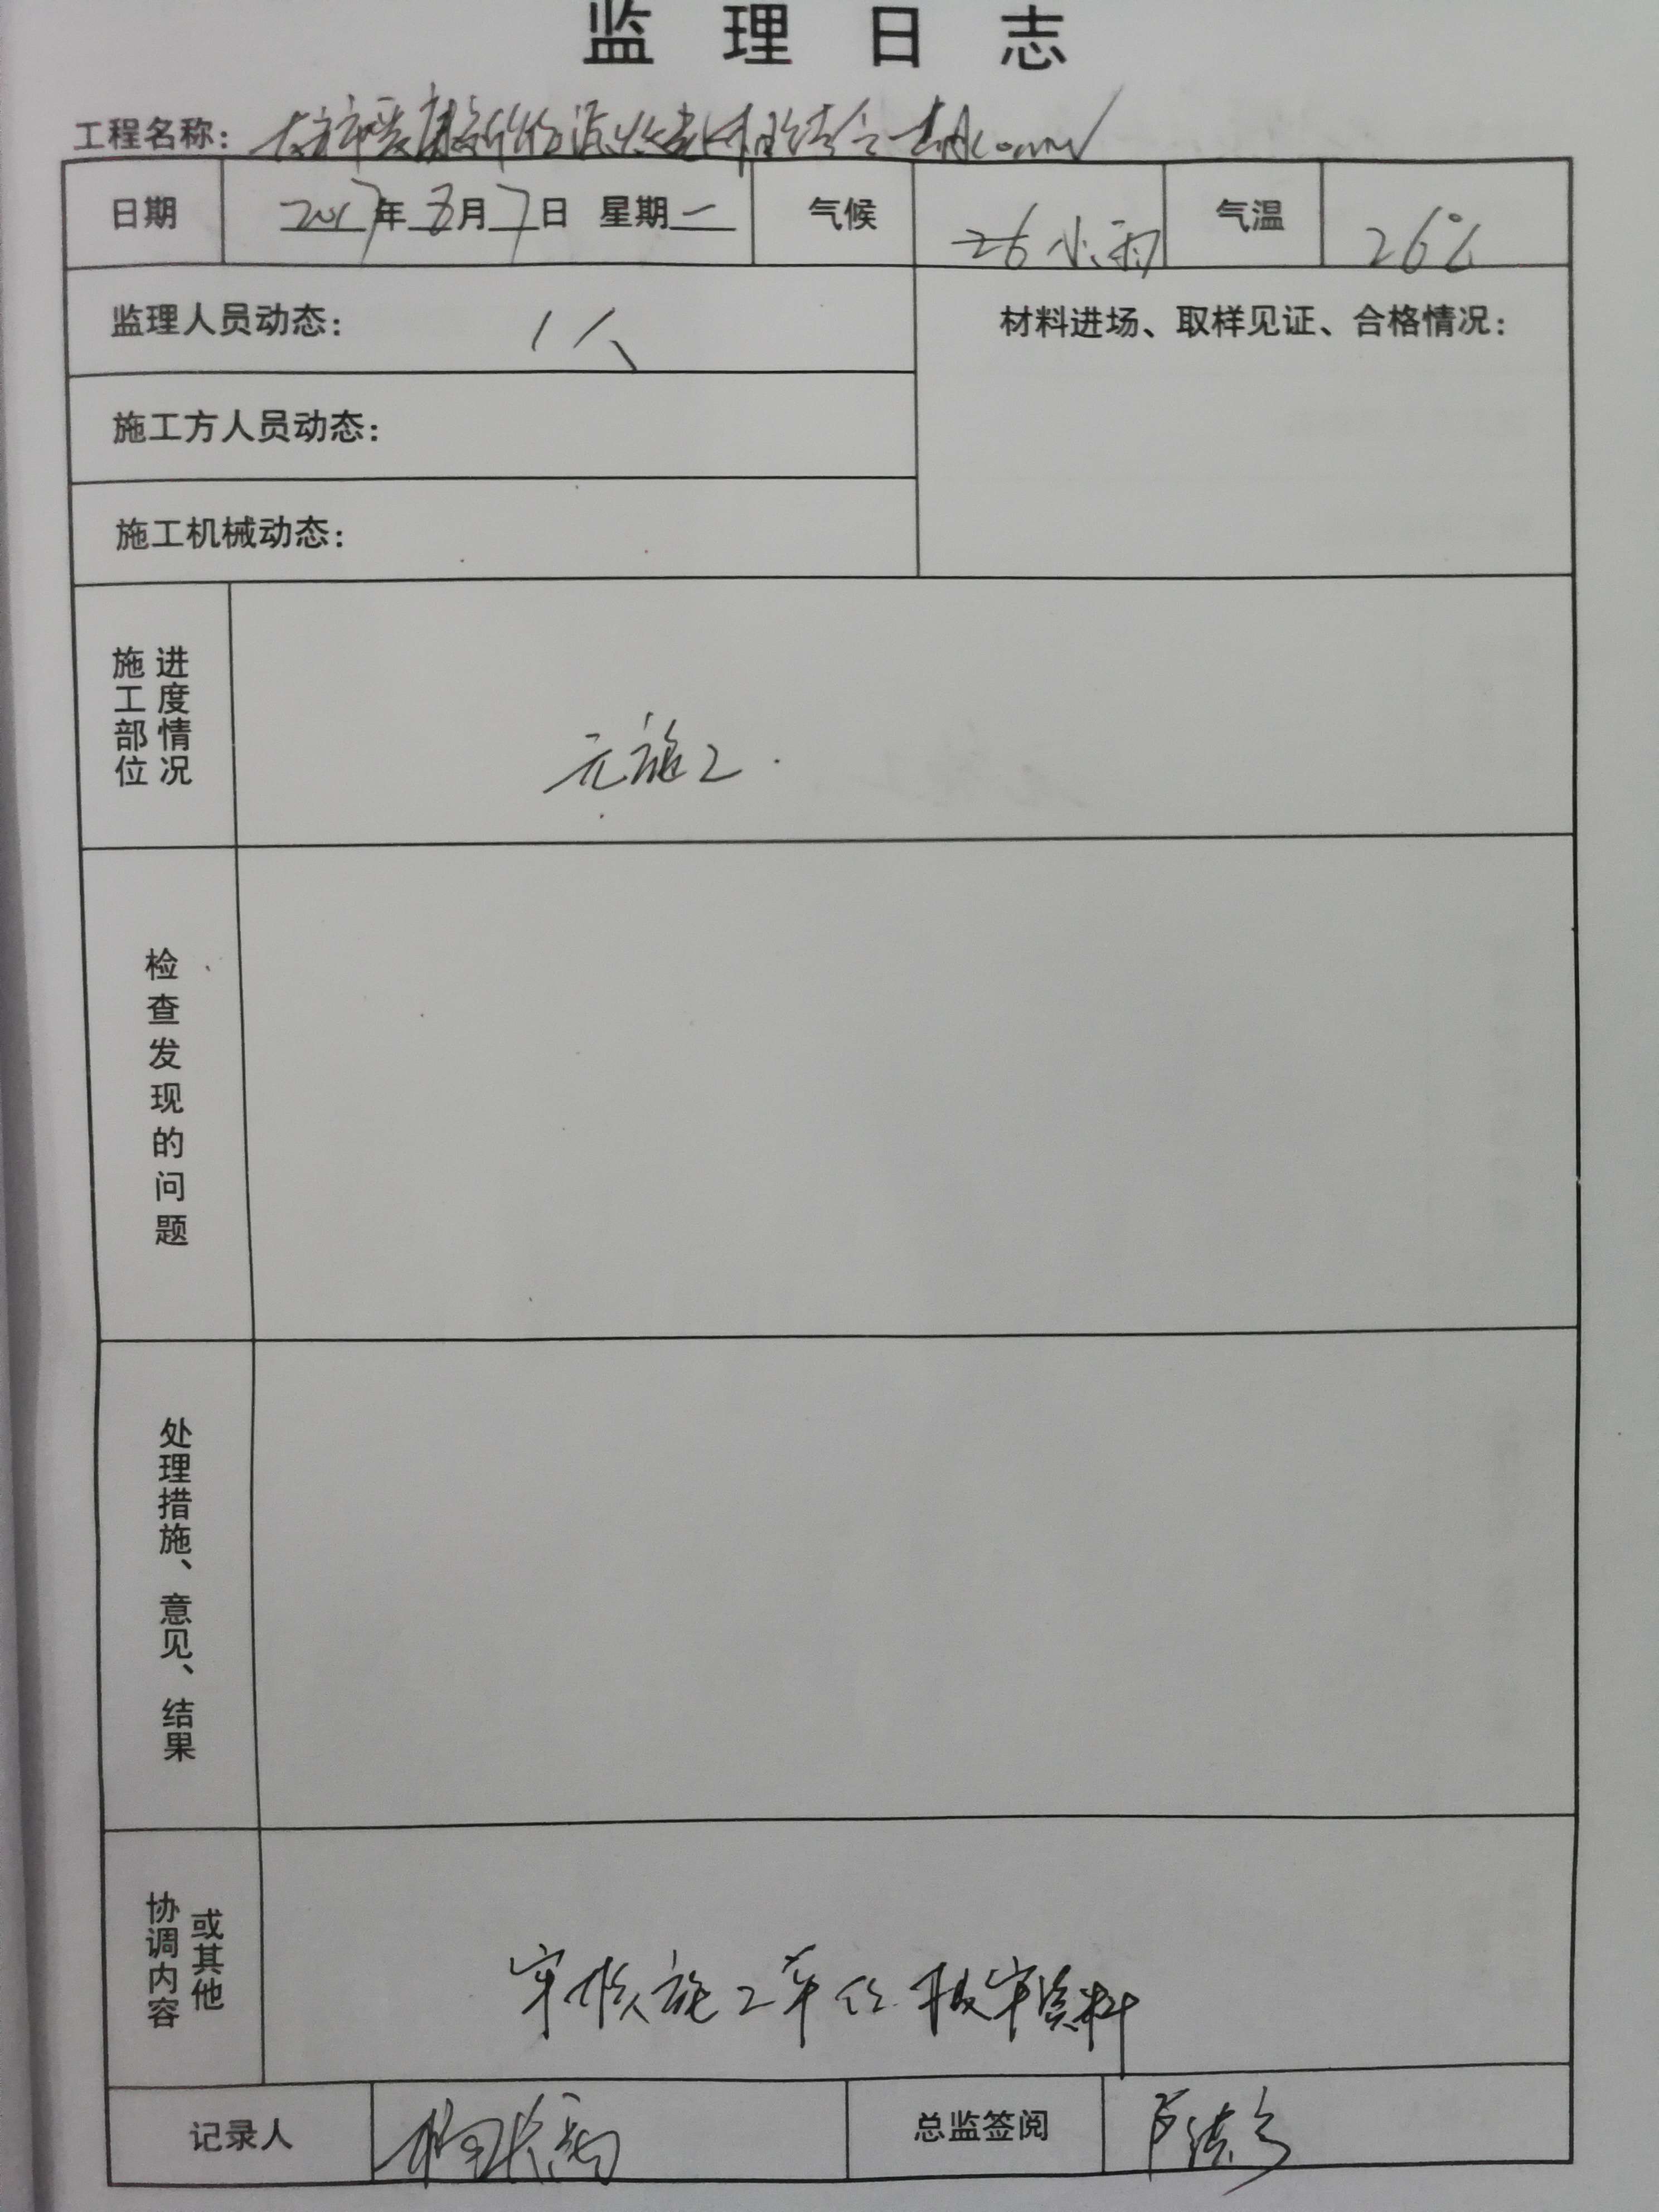 监理日志
工程名称：
日期 2017年8月7日 星期一 气候 26小雨 气温 26℃
监理人员动态： 1人 材料进场、取样见证、合格情况：
施工方人员动态：
施工机械动态：
施工部位 进度情况 无施工.
检查发现的问题
处理措施、意见、结果
协调内容 或其他 审核施工单位报审资料
记录人 总监签阅